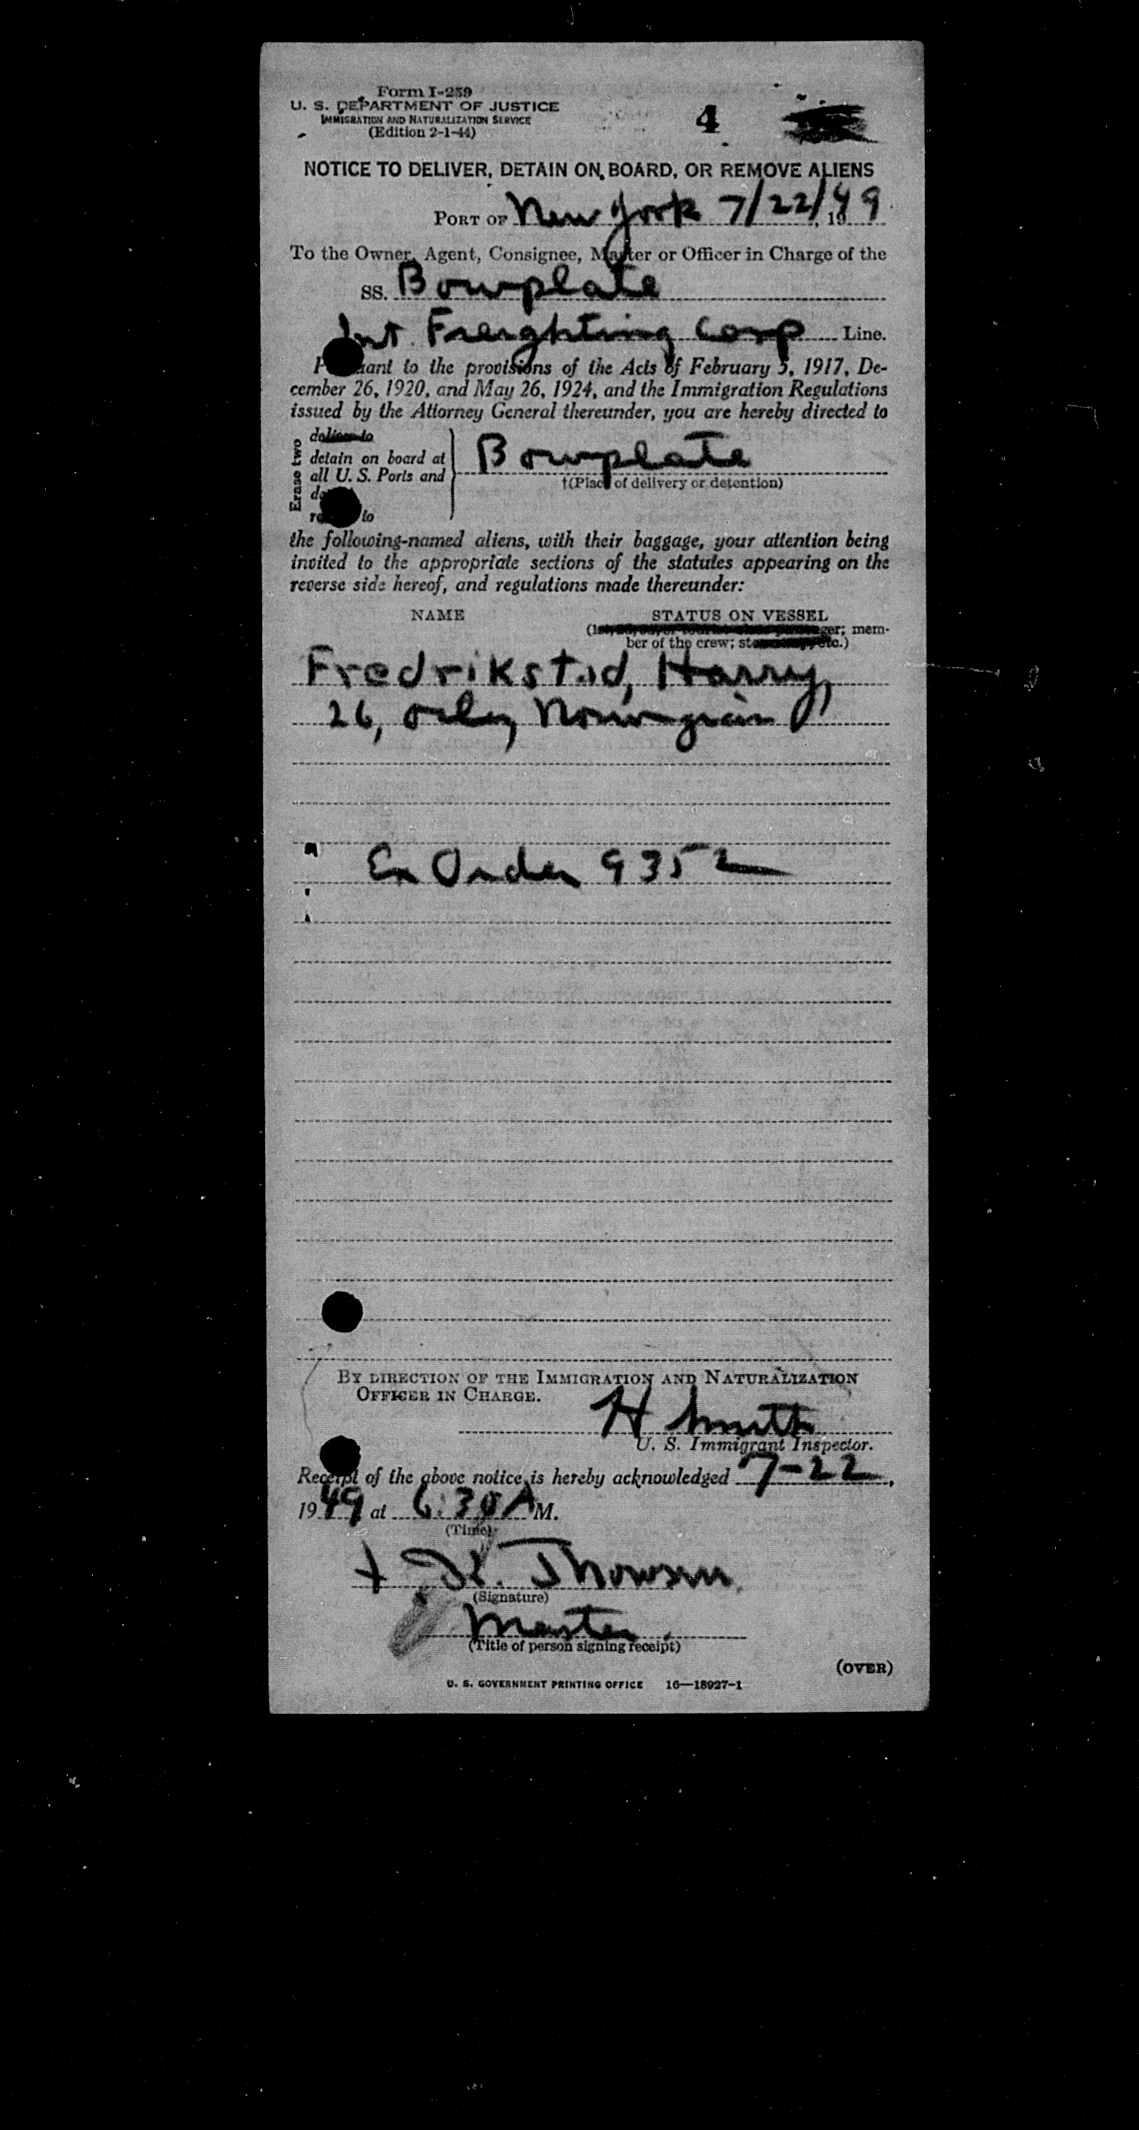 Form I-259
U. S. DEPARTMENT OF JUSTICE
IMMIGRATION AND NATURALIZATION SERVICE
(Edition 2-1-44)
4
NOTICE TO DELIVER, DETAIN ON BOARD, OR REMOVE ALIENS
PORT OF New York 7/22/, 1949
To the Owner, Agent, Consignee, Master or Officer in Charge of the
SS. Bowplate
Int. Freighting Corp Line.
Pursuant to the provisions of the Acts of February 5, 1917, De-
cember 26, 1920, and May 26, 1924, and the Immigration Regulations
issued by the Attorney General thereunder, you are hereby directed to
Erase two
deliver to
detain on board at
all U. S. Ports and
to
Bowplate
†(Place of delivery or detention)
the following-named aliens, with their baggage, your attention being
invited to the appropriate sections of the statutes appearing on the
reverse side hereof, and regulations made thereunder:
NAME STATUS ON VESSEL
mem-
ber of the crew; etc.)
Fredrikstad, Harry,
26, Norwegian
Ex Order 9352
BY DIRECTION OF THE IMMIGRATION AND NATURALIZATION
OFFICER IN CHARGE.
H Smith
U. S. Immigrant Inspector.
Receipt of the above notice is hereby acknowledged 7-22,
1949 at 6:30 A M.
(Time)
(Signature)
Master
(Title of person signing receipt)
(OVER)
U. S. GOVERNMENT PRINTING OFFICE 16—18927-1